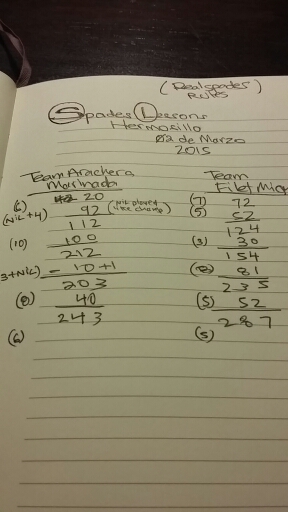 (Real spades)
Rules
Spades Lessons
Hermosillo
02 de Marzo
2015
Team Arachera
Marinada
Team
Filet Mig
20
(7) 72
(Nil + 4) 92 (Nil played like champ)
(5) 52
112
124
(10) 100
(3) 30
212
154
3 + Nil) - 10 + 1
81
203
235
40
(5) 52
243
287
(6)
(5)